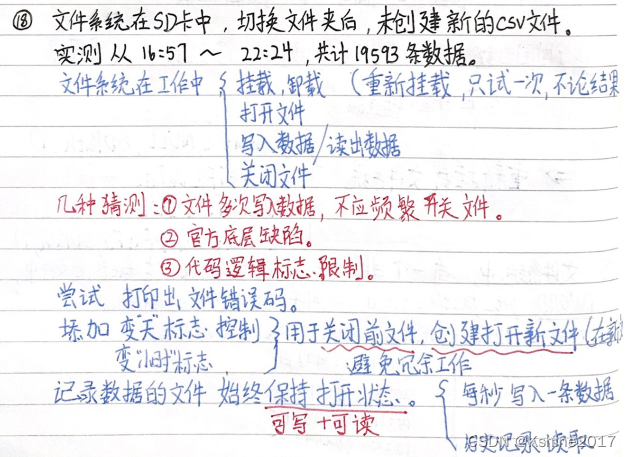 ⑱ 文件系统在SD卡中，切换文件夹后，未创建新的CSV文件。
实测从16:57～22:24，共计19593条数据。
文件系统在工作中 { 挂载，卸载 （重新挂载，只试一次，不论结果
打开文件
写入数据/读出数据
关闭文件
几种猜测：① 文件多次写入数据，不应频繁开关文件。
② 官方底层缺陷。
③ 代码逻辑标志、限制。
尝试 打印出文件错误码。
添加 变"天"标志 控制 } 用于关闭前文件，创建打开新文件（在新
变"小时"标志， 避免冗余工作
记录数据的文件 始终保持打开状态。 { 每秒写入一条数据
可写+可读
历史记录读取。
CSDN @Kshine2017